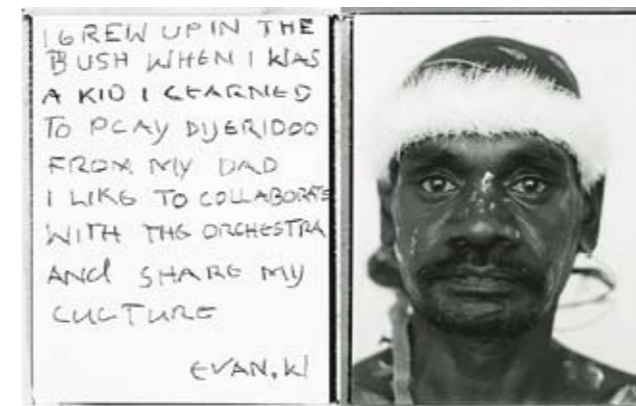 I GREW UP IN THE
BUSH WHEN I WAS
A KID I LEARNED
TO PLAY DIJERIDOO
FROM MY DAD
I LIKE TO COLLABORATE
WITH THE ORCHESTRA
ANd SHARE MY
CULTURE
EVAN.W